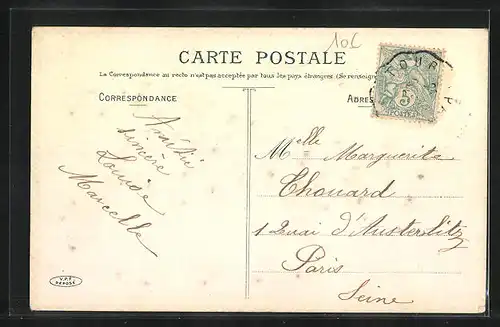 10£
CARTE POSTALE
La Correspondance au recto n'est pas acceptée par tous les pays étrangers (Se renseign
CORRESPONDANCE
ADRES
TOUR
5
POSTES
Amitié
sincère
Louise
Marcelle
Melle Marguerite
Thouard
1 Quai d'Austerlitz
Paris
Seine
V.P.F.
DÉPOSÉ